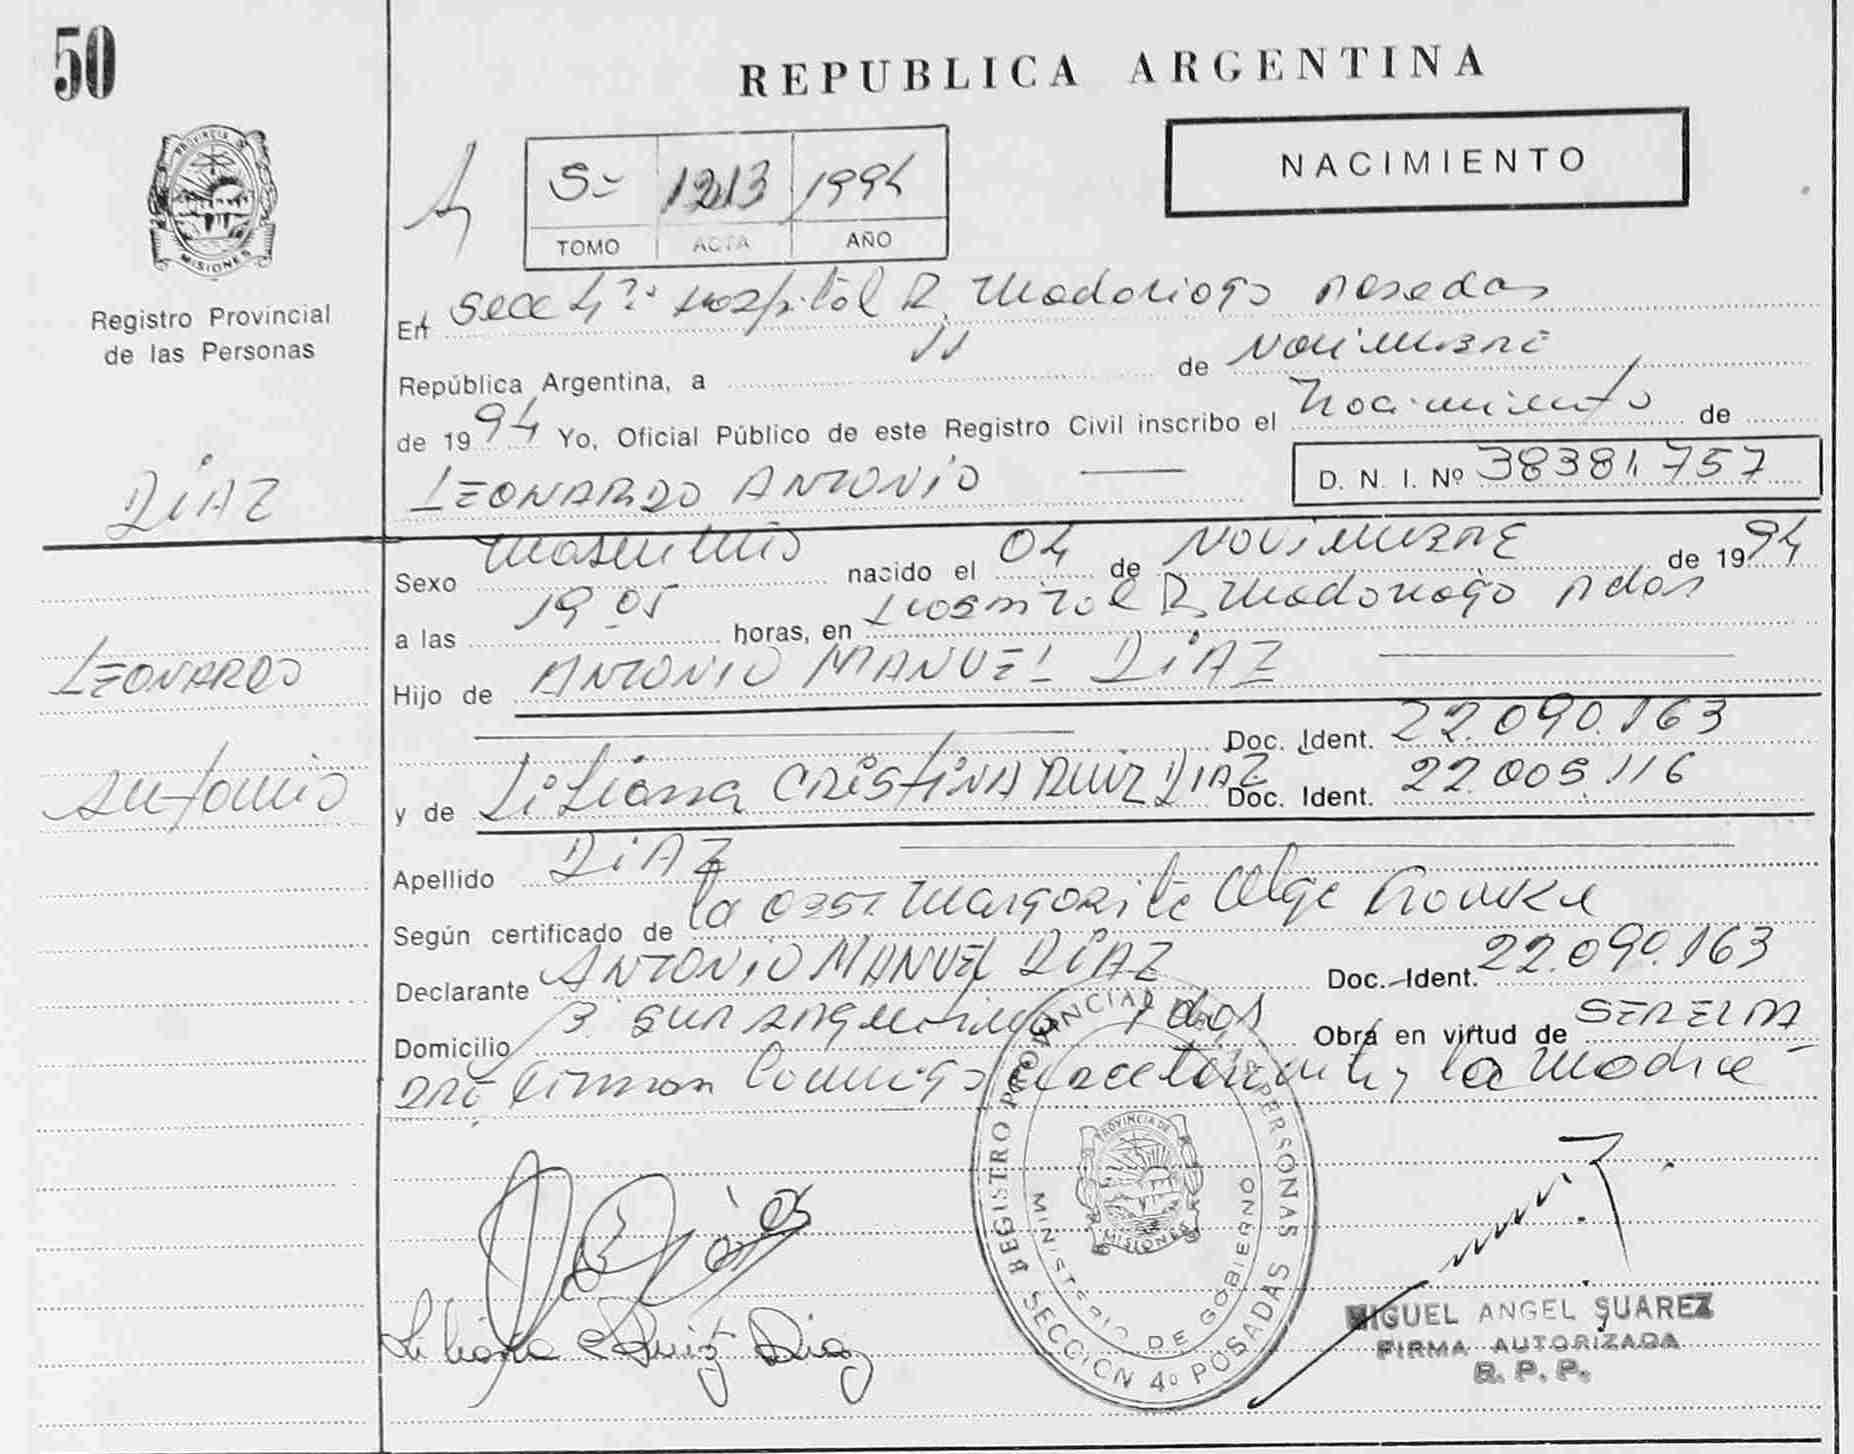 50
REPUBLICA ARGENTINA
NACIMIENTO
PROVINCIA DE
MISIONES
Registro Provincial
de las Personas
4
5- 1213 1994
TOMO ACTA AÑO
En Secc 4ª Hospital R. Madariaga Posadas
República Argentina, a 11 de Noviembre
de 1994 Yo, Oficial Público de este Registro Civil inscribo el Nacimiento de
DiAZ
LEONARDO ANTONIO
D. N. I. Nº 38381.757
Sexo Masculino nacido el 04 de NOVIEMBRE de 1994
a las 19 05 horas, en Hospital R. Madariaga Pdas
LEONARDO
Hijo de ANTONIO MANUEL DiAZ
Doc. Ident. 22.090.163
Antonio
y de Liliana CRISTINA RUIZ DIAZ Doc. Ident. 22.005.116
Apellido DiAZ
Según certificado de la Obst. Margarita Olga
Declarante ANTONIO MANUEL DiAZ Doc. Ident. 22.090.163
Domicilio Pdas Obra en virtud de
Firman Conmigo y la Madre -
REGISTRO PROVINCIAL DE LAS PERSONAS
SECCION 4º POSADAS
MINISTERIO DE GOBIERNO
PROVINCIA DE
MISIONES
Liliana C Ruiz Diaz
MIGUEL ANGEL SUAREZ
FIRMA AUTORIZADA
R. P. P.